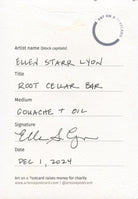 ART ON A POSTCARD
Artist name (block capitals)
ELLEN STARR LYON
Title
ROOT CELLAR BAR
Medium
GOUACHE + OIL
Signature
Date
DEC 1, 2024
Art on a Postcard raises money for charity
www.artonapostcard.com | @artonapostcard